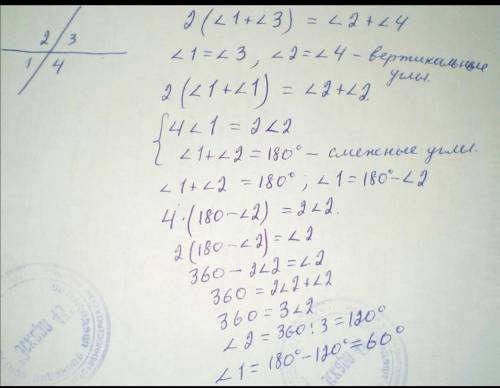 2 3
1 4
2(∠1+∠3) = ∠2+∠4
∠1=∠3, ∠2=∠4 - вертикальные
углы.
2(∠1+∠1) = ∠2+∠2
{4∠1 = 2∠2
∠1+∠2 = 180° - смежные углы.
∠1+∠2 = 180°; ∠1=180°-∠2
4·(180-∠2) = 2∠2.
2(180-∠2)=∠2
360-2∠2=∠2
360=2∠2+∠2
360=3∠2
∠2=360:3=120°
∠1=180°-120°=60°